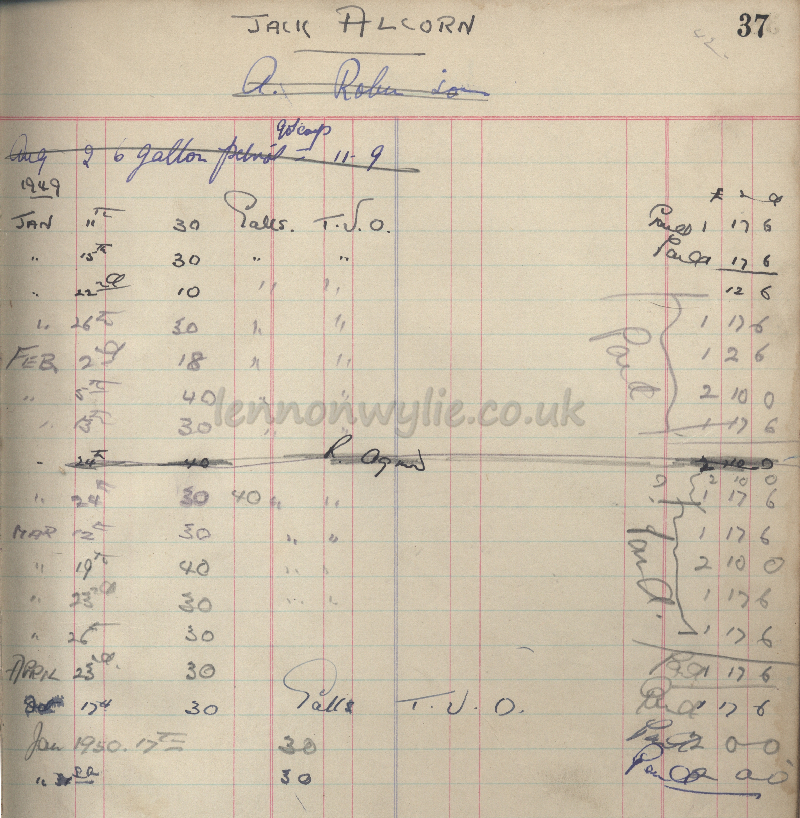 JACK ALCORN 37
A. Robinson
Aug 2 6 gallon petrol 11-9
1949 £ s d
JAN 11TH 30 Galls. T.V.O. Paid 1 17 6
" 15TH 30 " " Paid 1 17 6
" 22nd 10 " " 12 6
" 26TH 30 " " 1 17 6
FEB 2nd 18 " " 1 2 6
Paid
" 5TH 40 " 2 10 0
" 13TH 30 " " 1 17 6
lennonwylie.co.uk
" 24TH 40 R. Agnew 2 10 0
2 10 0
" 24TH 30 40 " " 1 17 6
MAR 12TH 30 " " 1 17 6
Paid.
" 19TH 40 " " 2 10 0
" 23rd 30 " " 1 17 6
" 26TH 30 1 17 6
APRIL 23rd. 30 Pd 1 17 6
17th 30 Galls T.V.O. Paid 1 17 6
Jan 1950. 17TH 30 Paid 2 0 0
" 30 Paid 2 0 0